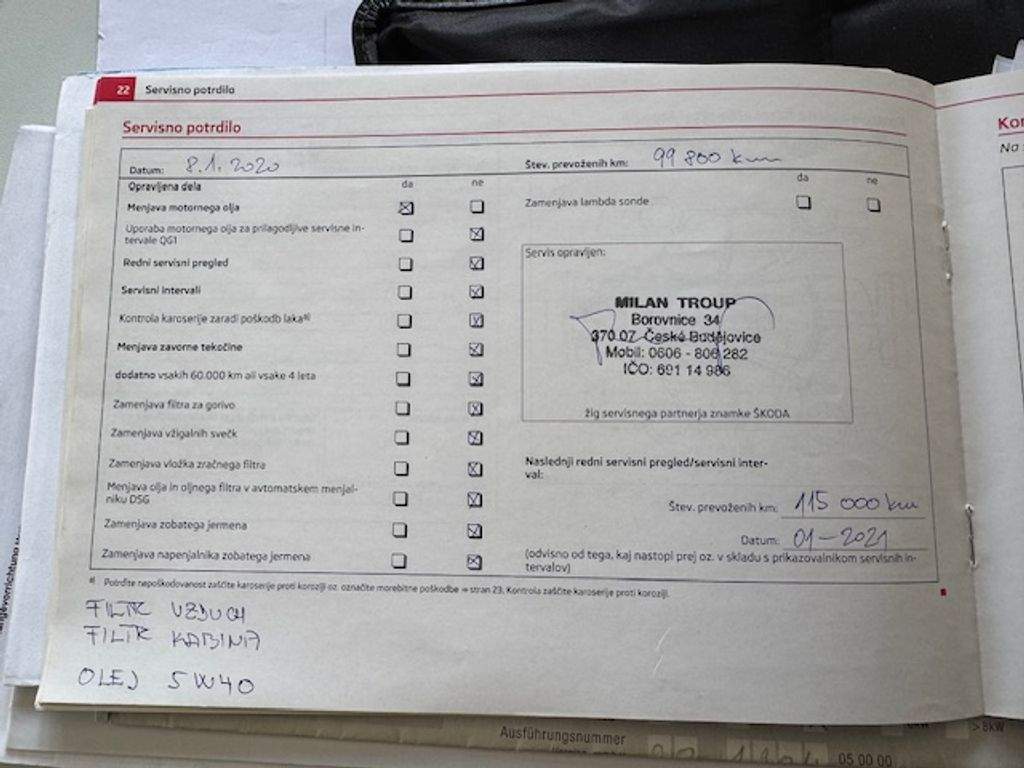 22 Servisno potrdilo
Servisno potrdilo
Datum: 8.1.2020
Štev. prevoženih km: 99 800 km
Opravljena dela da ne
da ne
Menjava motornega olja
Zamenjava lambda sonde
Uporaba motornega olja za prilagodljive servisne in-
tervale QG1
Redni servisni pregled
Servisni intervali
Kontrola karoserije zaradi poškodb laka a)
Menjava zavorne tekočine
dodatno vsakih 60.000 km ali vsake 4 leta
Zamenjava filtra za gorivo
Zamenjava vžigalnih svečk
Zamenjava vložka zračnega filtra
Menjava olja in oljnega filtra v avtomatskem menjal-
niku DSG
Zamenjava zobatega jermena
Zamenjava napenjalnika zobatega jermena
Servis opravljen:
MILAN TROUP
Borovnice 34
370 07 České Budějovice
Mobil: 0606 - 806 282
IČO: 691 14 986
žig servisnega partnerja znamke ŠKODA
Naslednji redni servisni pregled/servisni inter-
val:
Štev. prevoženih km: 115 000 km
Datum: 01-2021
(odvisno od tega, kaj nastopi prej oz. v skladu s prikazovalnikom servisnih in-
tervalov)
a) Potrdite nepoškodovanost zaščite karoserije proti koroziji oz. označite morebitne poškodbe ⇒ stran 23. Kontrola zaščite karoserije proti koroziji.
FILTR VZDUCH
FILTR KABINA
OLEJ 5W40
Ausführungsnummer
05 00 00
> 8kW